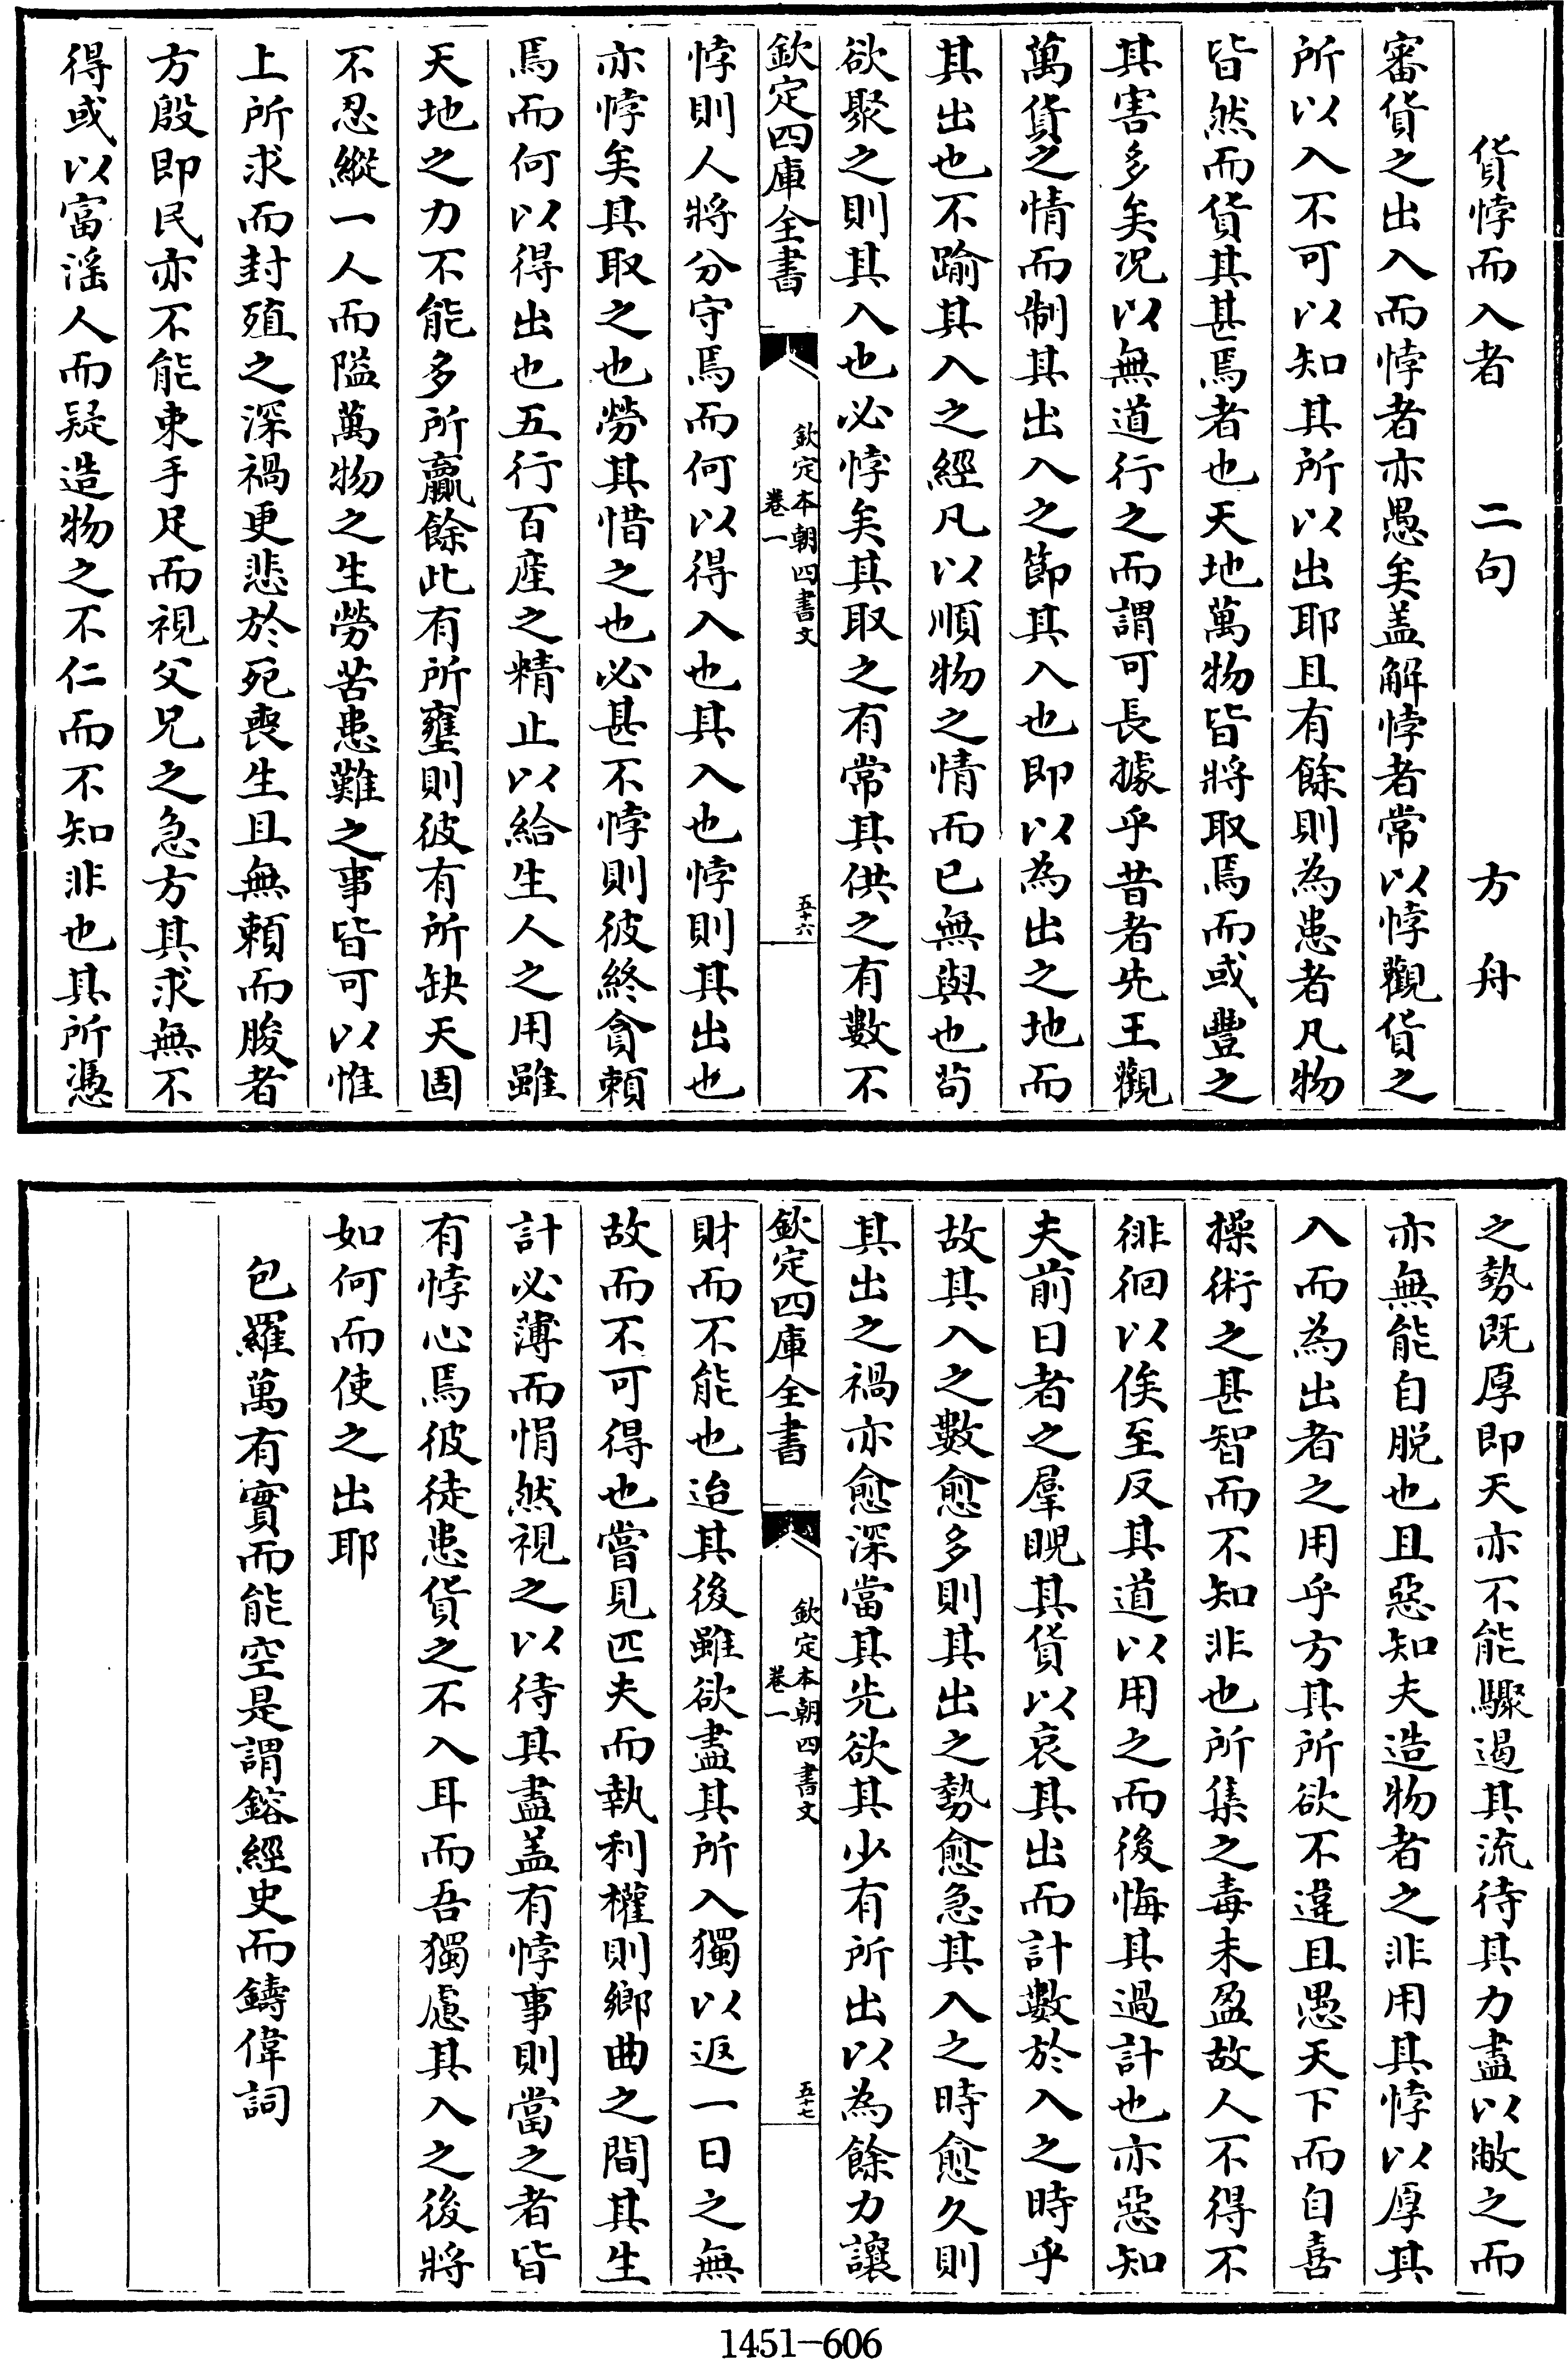 貨悖而入者　二句　方舟
審貨之出入而悖者亦愚矣盖解悖者常以悖觀貨之
所以入不可以知其所以出耶且有餘則為患者凡物
皆然而貨其甚焉者也天地萬物皆將取焉而或豐之
其害多矣况以無道行之而謂可長據乎昔者先王觀
萬貨之情而制其出入之節其入也即以為出之地而
其出也不踰其入之經凡以順物之情而已無與也茍
欲聚之則其入也必悖矣其取之有常其供之有數不
欽定四庫全書
欽定本朝四書文
卷一
五十六
悖則人將分守焉而何以得入也其入也悖則其出也
亦悖矣其取之也勞其惜之也必甚不悖則彼終貪賴
焉而何以得出也五行百産之精止以給生人之用雖
天地之力不能多所贏餘此有所壅則彼有所缺天固
不忍縱一人而隘萬物之生勞苦患難之事皆可以惟
上所求而封殖之深禍更悲於死喪生且無賴而朘者
方殷即民亦不能束手足而視父兄之急方其求無不
得或以富滛人而疑造物之不仁而不知非也其所憑
之勢既厚即天亦不能驟遏其流待其力盡以敝之而
亦無能自脱也且惡知夫造物者之非用其悖以厚其
入而為出者之用乎方其所欲不違且愚天下而自喜
操術之甚智而不知非也所集之毒未盈故人不得不
徘徊以俟至反其道以用之而後悔其過計也亦惡知
夫前日者之羣睨其貨以哀其出而計數於入之時乎
故其入之數愈多則其出之勢愈急其入之時愈久則
其出之禍亦愈深當其先欲其少有所出以為餘力讓
欽定四庫全書
欽定本朝四書文
卷一
五十七
財而不能也迨其後雖欲盡其所入獨以返一日之無
故而不可得也嘗見匹夫而執利權則鄉曲之間其生
計必薄而悁然視之以待其盡盖有悖事則當之者皆
有悖心焉彼徒患貨之不入耳而吾獨慮其入之後將
如何而使之出耶
包羅萬有實而能空是謂鎔經史而鑄偉詞
1451-606